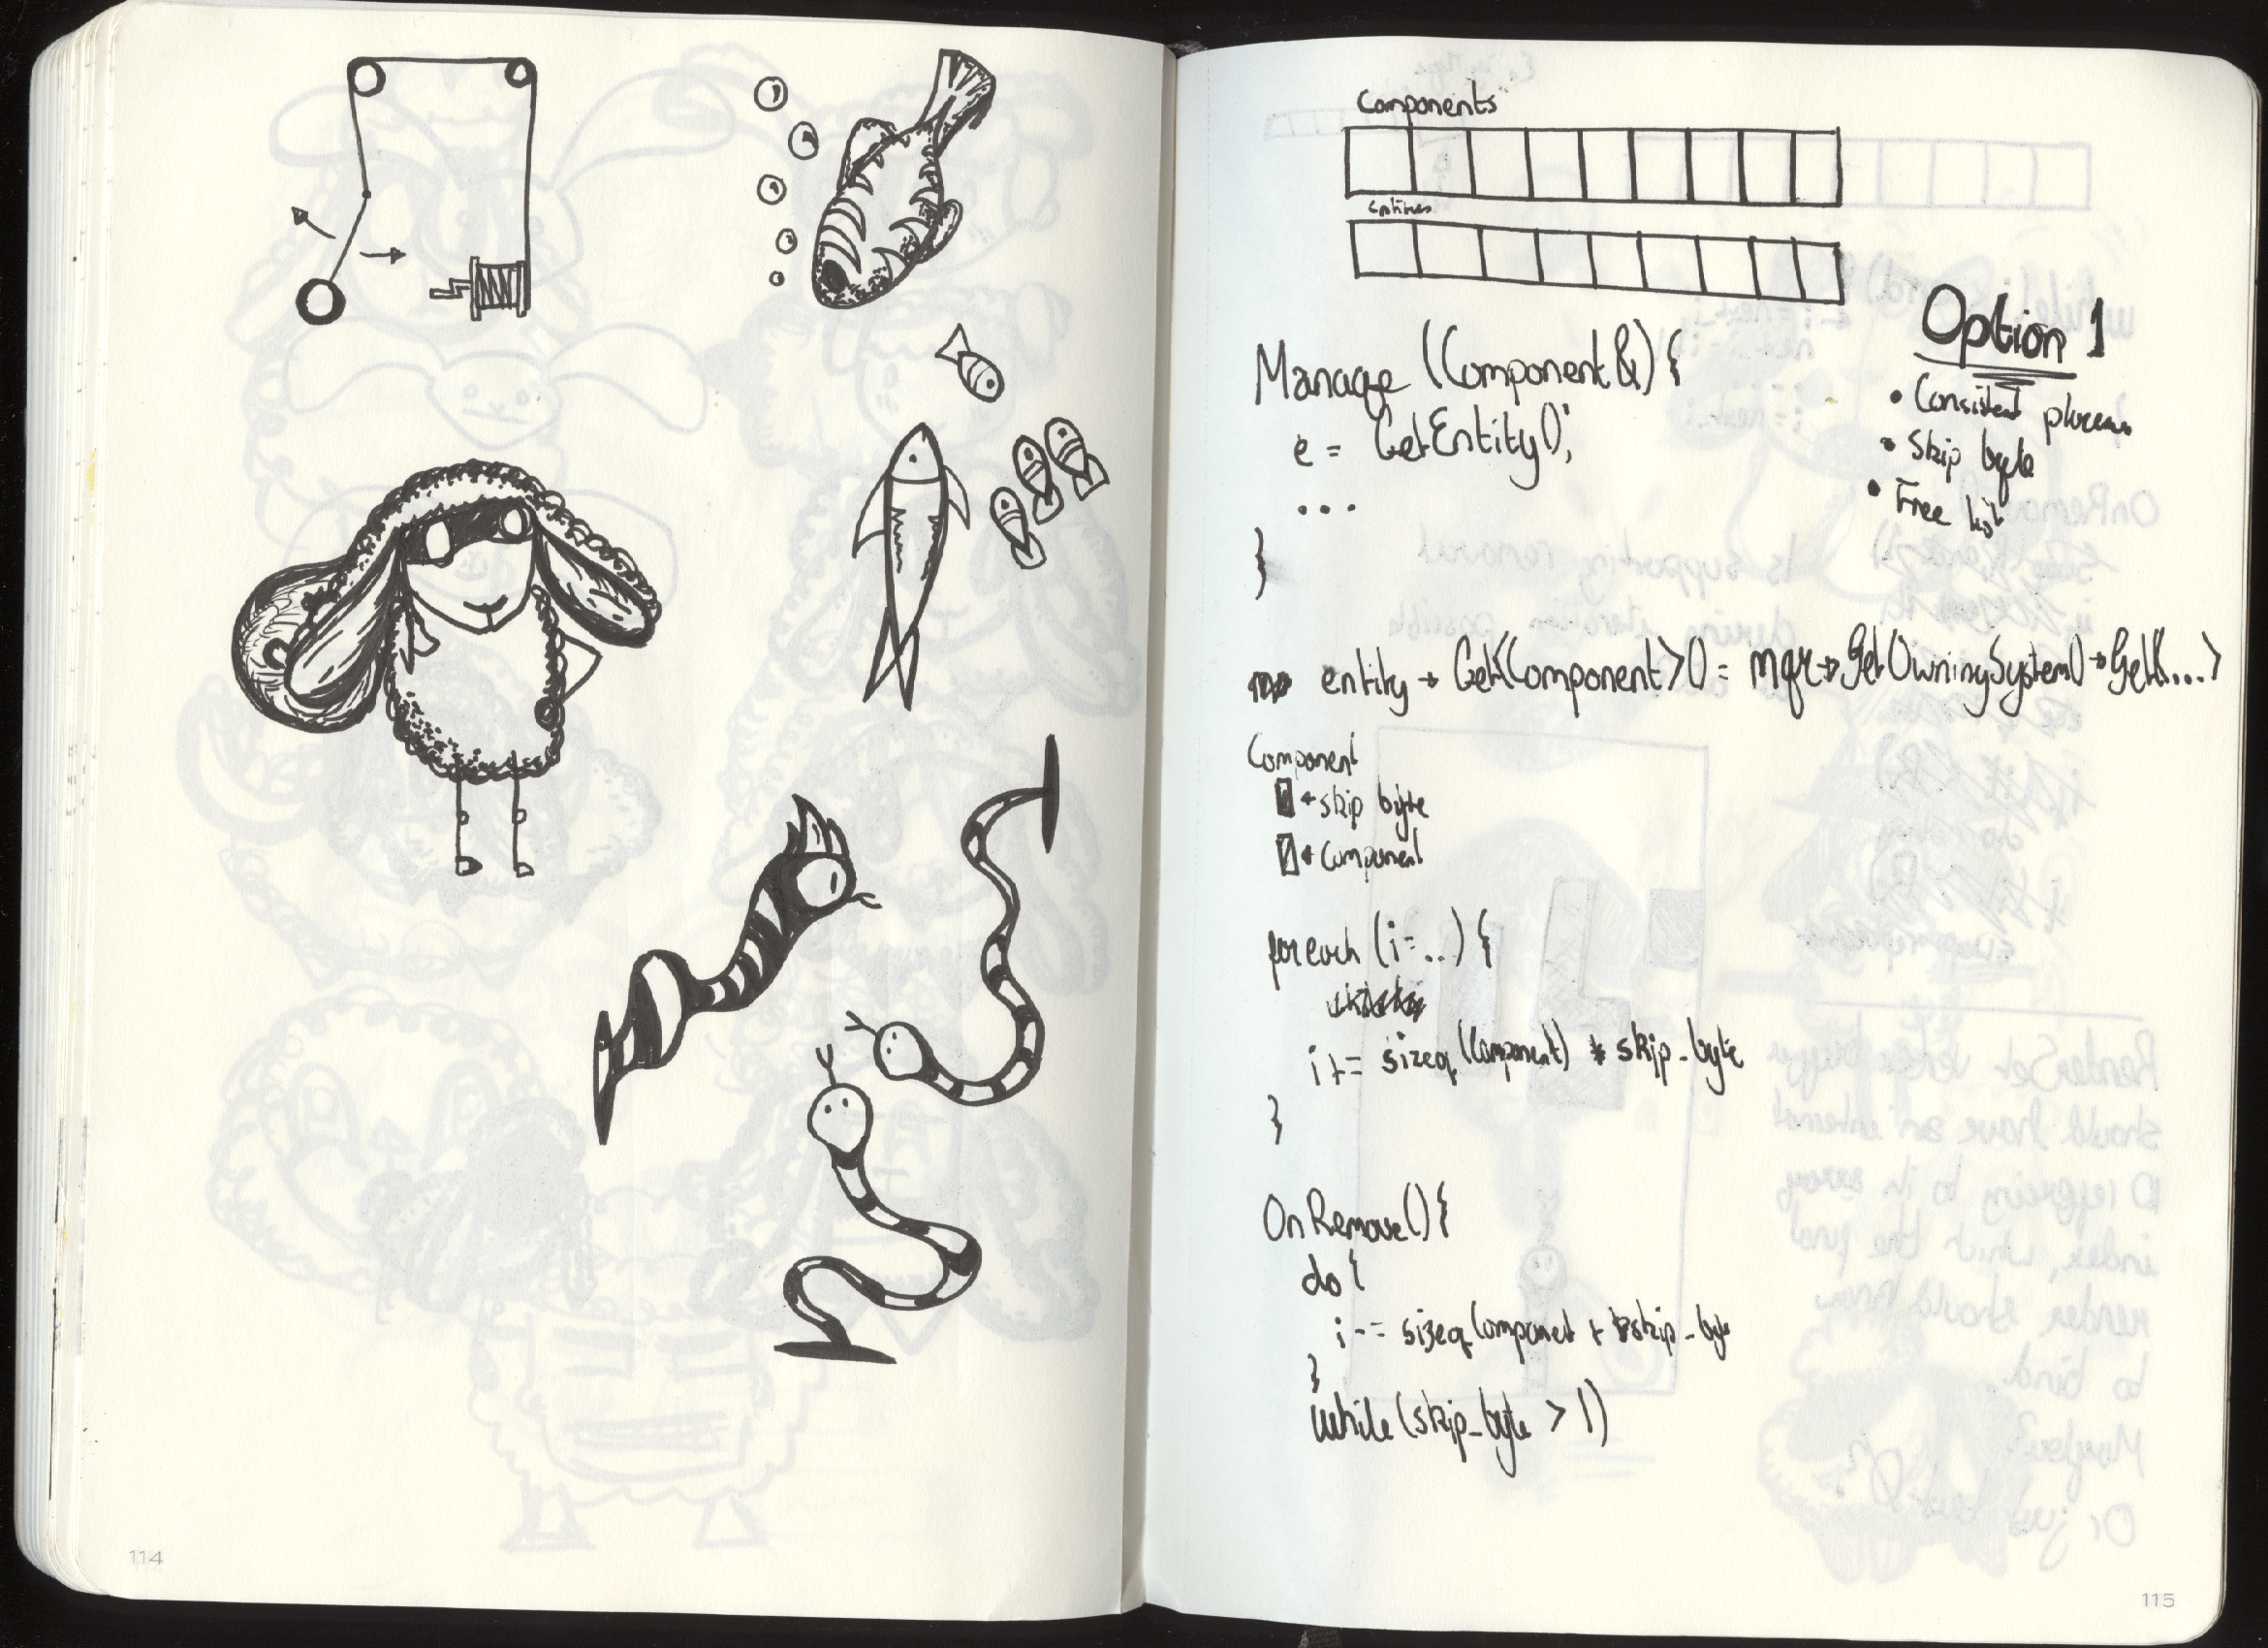 Components
entities
Manage (Component &) {
e = GetEntity();
...
}
Option 1
• Consistent
• Skip byte
• Free list
entity → Get<Component>() = mgr → GetOwningSystem() → Get<....>
Component
← skip byte
← Component
foreach (i = ..) {
i += sizeof (Component) * skip_byte
}
OnRemove() {
do {
i -= sizeof Component + skip_byte
}
while (skip_byte > 1)
114
115